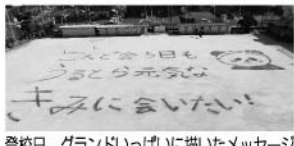 こんど会う日も
うるとら元気な
きみに会いたい!
登校日、グランドいっぱいに描いたメッセージ